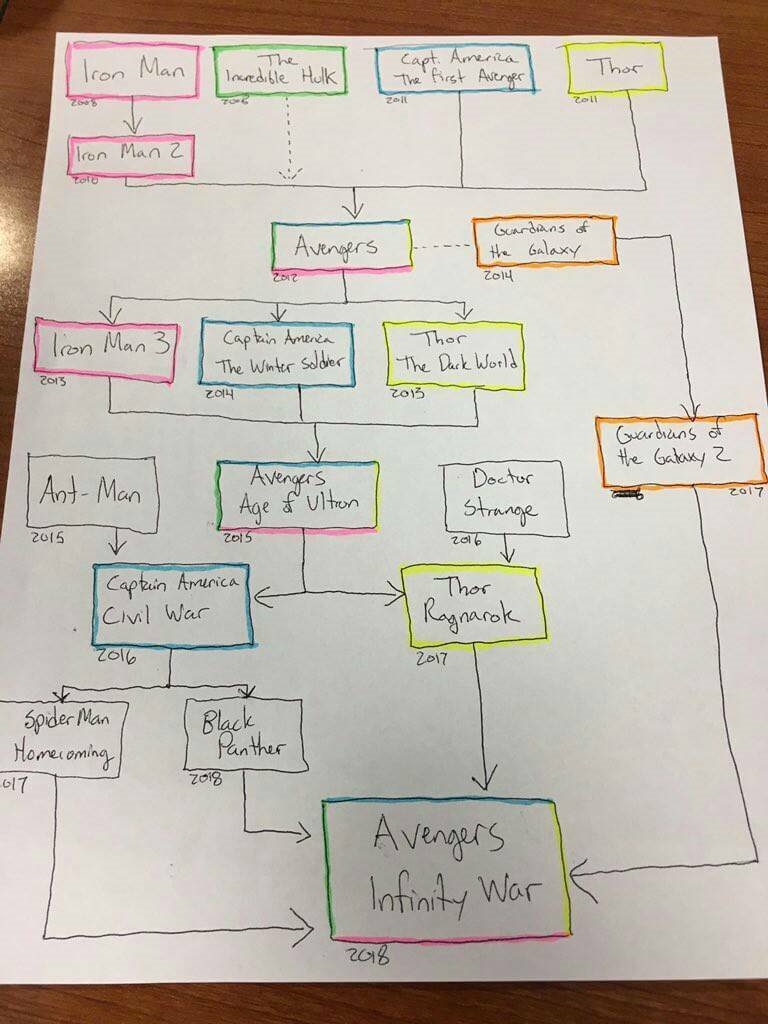 Iron Man
2008
The
Incredible Hulk
2008
Capt. America
The First Avenger
2011
Thor
2011
Iron Man 2
2010
Avengers
2012
Guardians of
the Galaxy
2014
Iron Man 3
2013
Captain America
The Winter Soldier
2014
Thor
The Dark World
2013
Guardians of
the Galaxy 2
2017
Ant-Man
2015
Avengers
Age of Ultron
2015
Doctor
Strange
2016
Captain America
Civil War
2016
Thor
Ragnarok
2017
SpiderMan
Homecoming
017
Black
Panther
2018
Avengers
Infinity War
2018